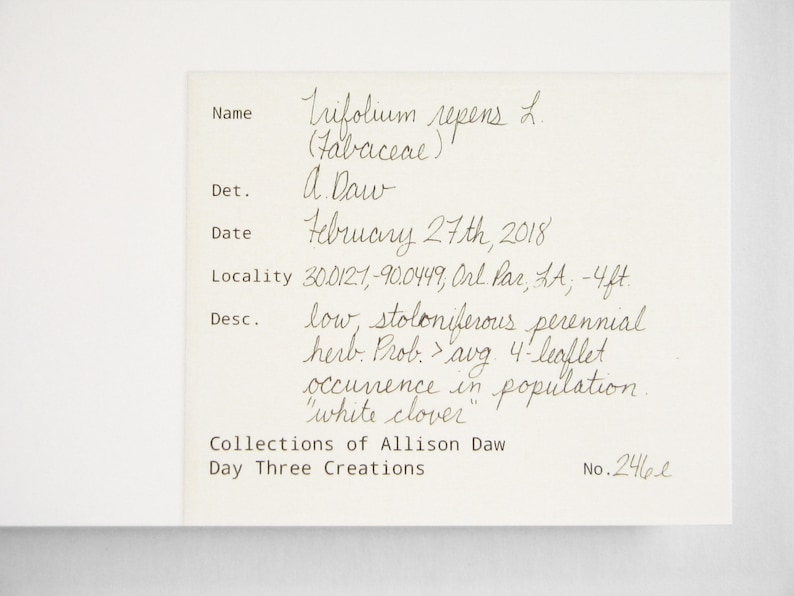 Name Trifolium repens L.
(Fabaceae)
Det. A. Daw
Date February 27th, 2018
Locality 30.0127, -90.0449; Orl. Par., LA; -4ft.
Desc. low, stoloniferous perennial
herb. Prob. > avg. 4-leaflet
occurrence in population.
"white clover"
Collections of Allison Daw
Day Three Creations No. 246e